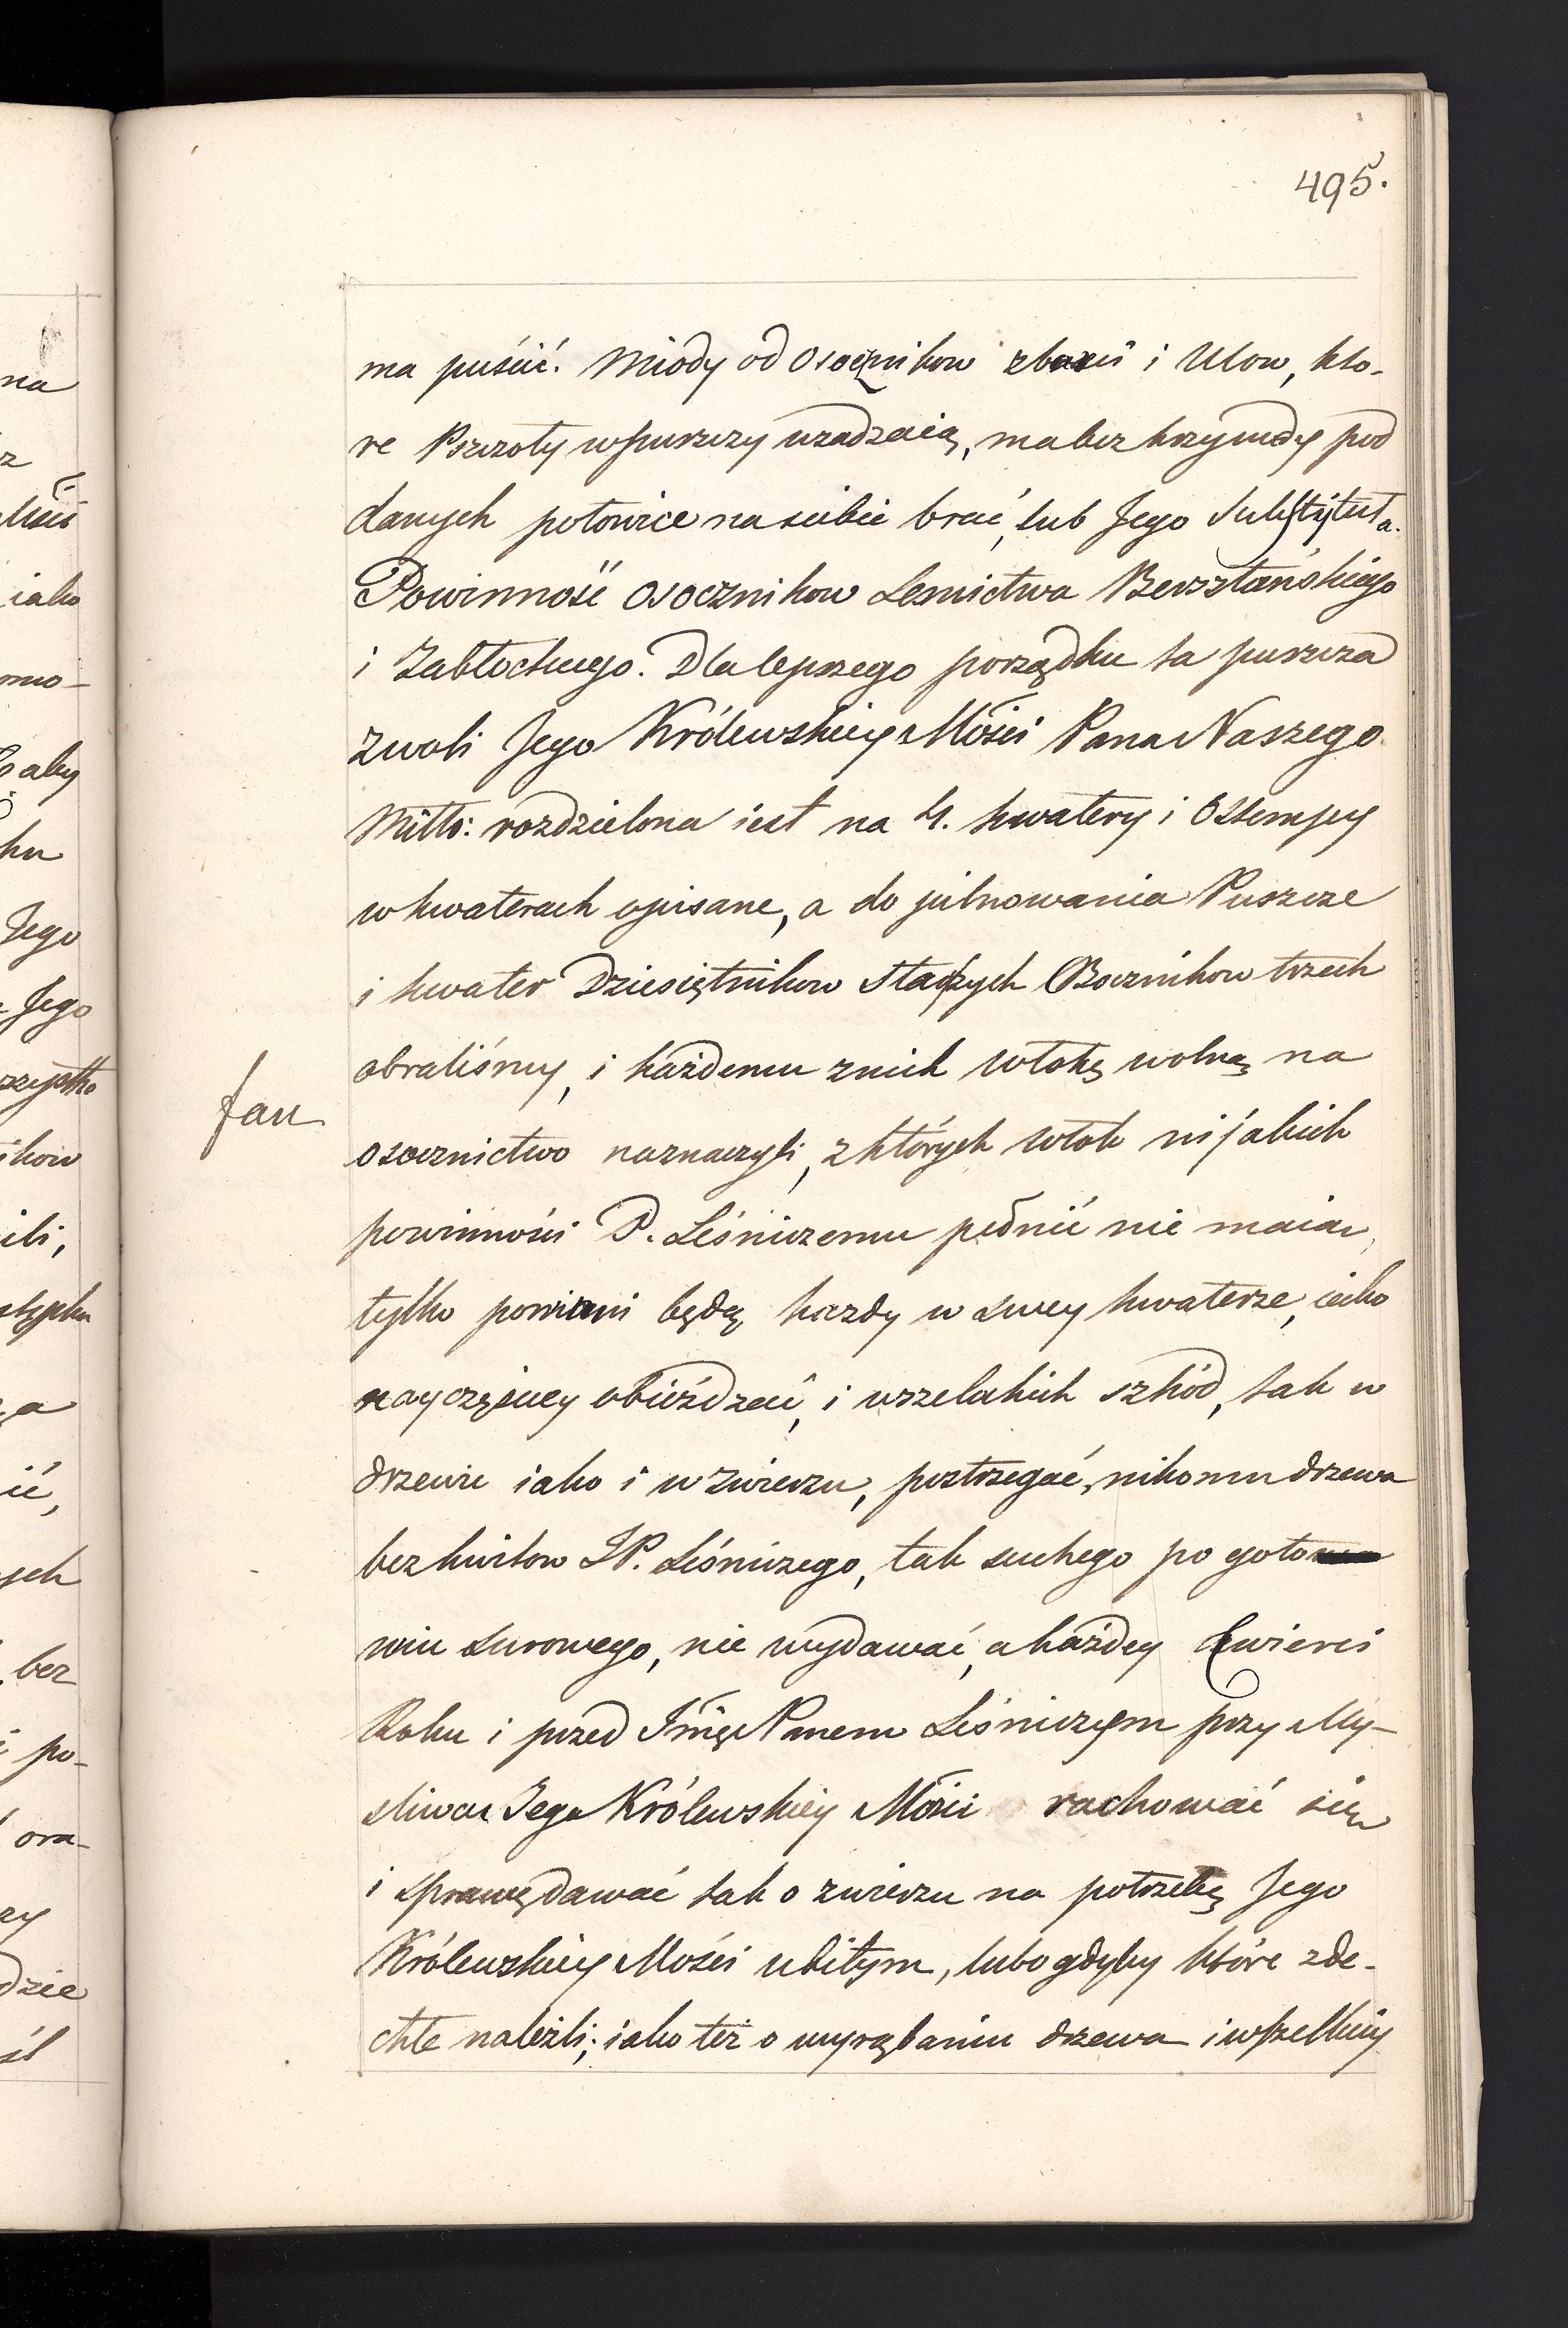 495.
ma puścić. Miody od Osoczników zbarci i Ulow, kto-
re Pszczoły w puszczy usadzaią, ma bez krzywdy pod
danych połowice na siebie brać, lub Jego Substytuta.
Powinność Osocznikow Lesnictwa Bersztańskiego
i Zabłockiego. Dla lepszego porządku ta puszcza
z woli Jego Królewskiey Mości Pana Naszego
Miłło: rozdzielona iest na 4. kwatery i Ostempy
w kwaterach opisane, a do pilnowania Puszcze
i kwater Dziesiętnikow Starszych Osocznikow trzech
obraliśmy, i każdemu z nich włokę wolną na
osocznictwo naznaczyli, z których włok nijakich
powinności P. Leśniczemu pełnić nie maią,
tylko powinni będą kazdy w swey kwaterze, iako
nayczęściey obieżdzać, i wszelakich szkód, tak w
drzewie iako i w zwierzu, postrzegać, nikomu drzewa
bez kwitow JP. Leśniczego, tak suchego po goto
wiu surowego, nie wydawać, a każdey Cwierci
Roku i przed Imię Panem Leśniczym przy My-
śliwcu Jego Królewskiey Mości rachować się
i sprawę dawać tak o zwierzu na potrzebę Jego
Królewskiey Mości ubitym, lubo gdyby które zde-
chłe należli; iako też o wyrąbaniu drzewa i wszelkiey